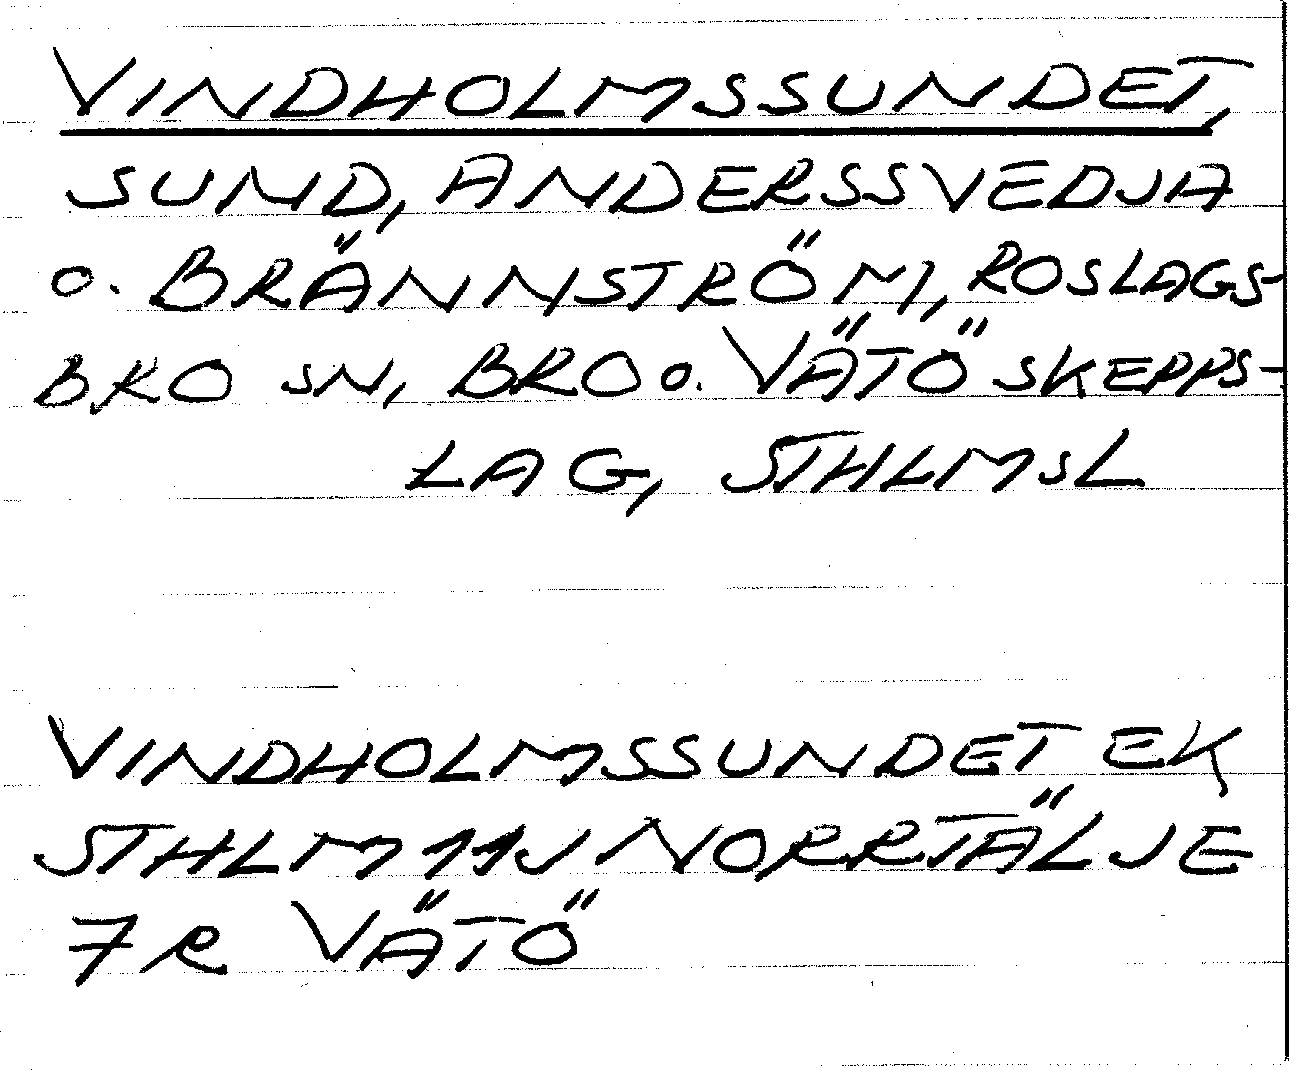 VINDHOLMSSUNDET,
SUND, ANDERSSVEDJA
o. BRÄNNSTRÖM, ROSLAGS-
BRO SN, BRO o. VÄTÖ SKEPPS-
LAG, STHLMSL
VINDHOLMSSUNDET EK
STHLM 11J NORRTÄLJE
7R VÄTÖ